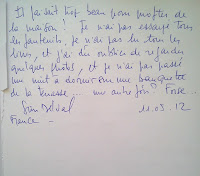 Il faisait trop beau pour profiter de
la maison! Je n'ai pas essayé tous
les fauteuils, je n'ai pas lu tous les
livres, et j'ai du oublier de regarder
quelques photos, et je n'ai pas passé
une nuit à dormir sur une banquette
de la terrasse... une autre fois? Forse...
11.03.12
France